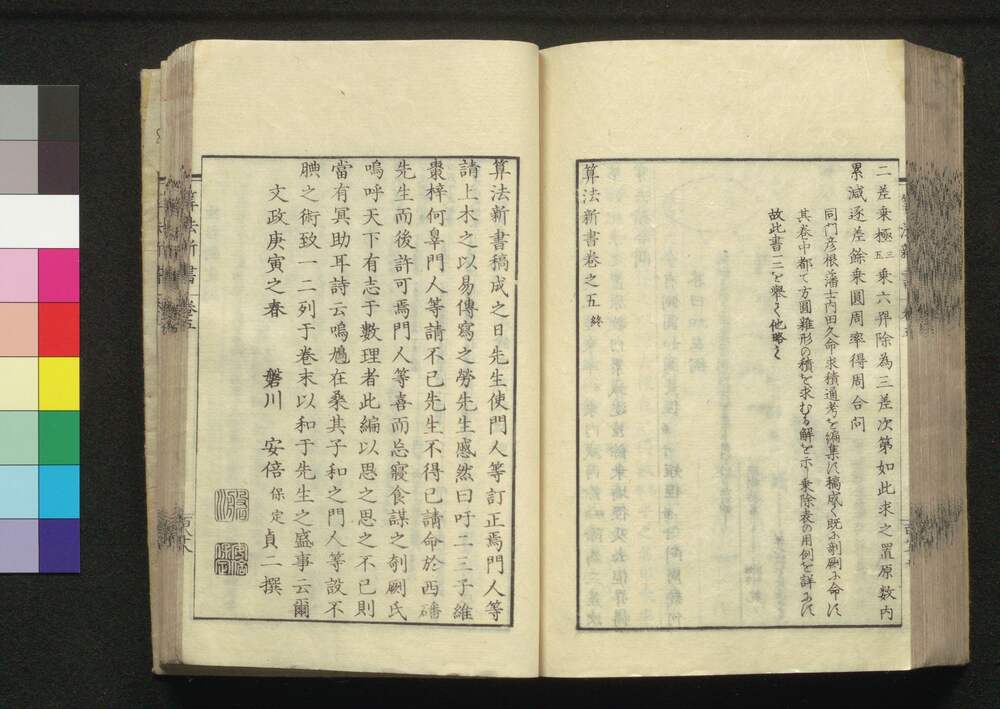 二差乗極三五乗六昇除為三差次第如此求之置原数内
累減逐差餘乗圓周率得周合问
同門彦根藩士内田久命求積通考を編集に稿成て既に剞劂に命に
其卷中都て方圓雜形の積を求むる解を示し乗除表の用例を詳に
故此書二三を舉て他略く
算法新書卷之五終
算法新書稿成之日先生使門人等訂正焉門人等
請上木之以易傳寫之勞先生慼然曰吁二三子維
棗梓何辜門人等請不已先生不得已請命於西磻
先生而後許可焉門人等喜而忘寢食謀之剞劂氏
嗚呼天下有志于數理者此編以思之思之不已則
當有冥助耳詩云鳴鳲在桑其子和之門人等設不
腆之術致一二列于卷末以和于先生之盛事云爾
文政庚寅之春 磐川 安倍保定貞二撰
算法新書 卷五